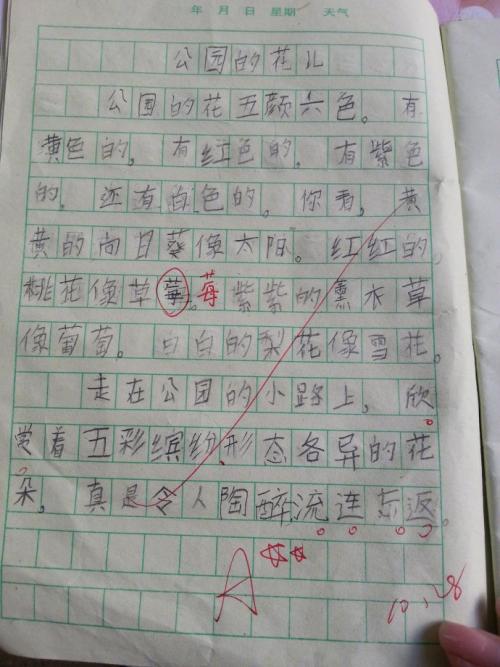 年 月 日 星期 天气
公园的花儿
公国的花五颜六色。有
黄色的。有红色的。有紫色
的。还有白色的。你看,黄
黄的向日葵像太阳。红红的
桃花像草莓。莓紫紫的熏木草
像葡萄。白白的梨花像雪花。
走在公园的小路上,欣
赏着五彩缤纷,形态各异的花
朵。真是令人陶醉,流连忘返。
A
10.28